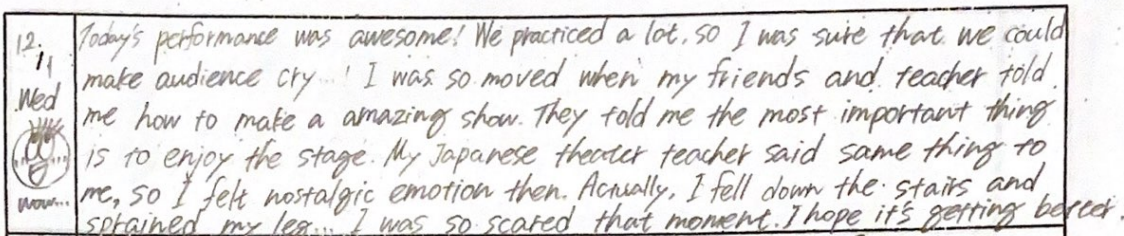 12.
11
Wed
wow...
Today's performance was awesome! We practiced a lot, so I was sure that we could
make audience cry...! I was so moved when my friends and teacher told
me how to make a amazing show. They told me the most important thing
is to enjoy the stage. My Japanese theater teacher said same thing to
me, so I felt nostalgic emotion then. Actually, I fell down the stairs and
sprained my leg... I was so scared that moment. I hope it's getting better.